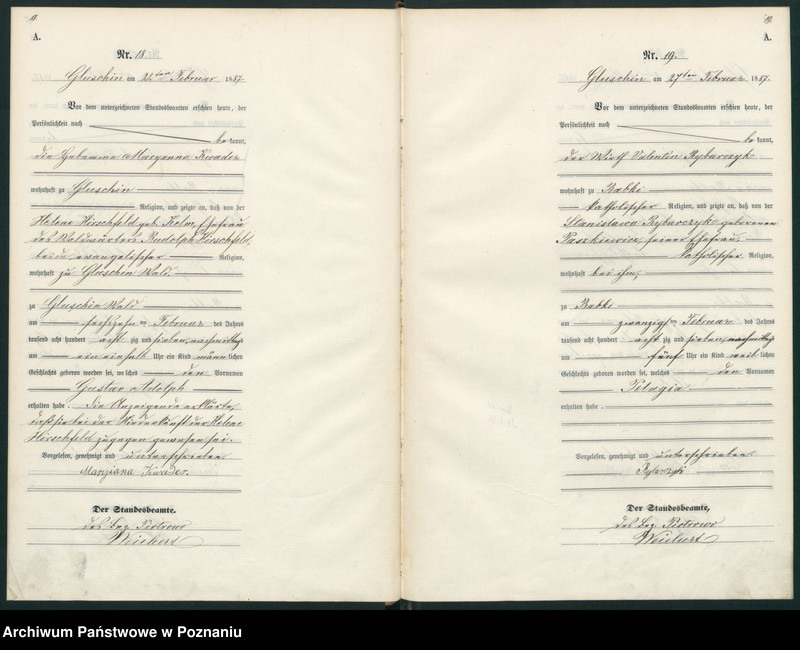 A.
Nr. 18.
Gluschin am 22ten Februar 1887
Vor dem unterzeichneten Standesbeamten erschien heute, der
Persönlichkeit nach
bekannt,
die Hebamme Maryanna Kwader
wohnhaft zu Gluschin
Religion, und zeigte an, daß von der
Helene Hirschfeld geb. Kelm, Ehefrau
des Waldwärters Rudolph Hirschfeld,
beide evangelischer Religion,
wohnhaft zu Gluschin Wald,
zu Gluschin Wald
am sechszehnten Februar des Jahres
tausend acht hundert acht zig und sieben, nachmittags
um ein einhalb Uhr ein Kind männlichen
Geschlechts geboren worden sei, welches den Vornamen
Gustav Adolph
erhalten habe. Die Anzeigende erklärte,
daß sie bei der Niederkunft der Helene
Hirschfeld zugegen gewesen sei.
Vorgelesen, genehmigt und unterschrieben
Maryiana Kwader.
Der Standesbeamte.
des Bez. Piotrowo
Weichert
A.
Nr. 19.
Gluschin am 27ten Februar 1887.
Vor dem unterzeichneten Standesbeamten erschien heute, der
Persönlichkeit nach
bekannt,
der Wirth Valentin Rybarczyk
wohnhaft zu Babki
katholischer Religion, und zeigte an, daß von der
Stanislawa Rybarczyk geborenen
Paszkiewicz, seiner Ehefrau,
katholischer Religion,
wohnhaft bei ihm,
zu Babki
am zwanzigsten Februar des Jahres
tausend acht hundert acht zig und sieben, nachmittags
um fünf Uhr ein Kind weiblichen
Geschlechts geboren worden sei, welches den Vornamen
Pelagia
erhalten habe.
Vorgelesen, genehmigt und unterschrieben
Rybarczyk
Der Standesbeamte.
des Bez. Piotrowo
Weichert
Archiwum Państwowe w Poznaniu